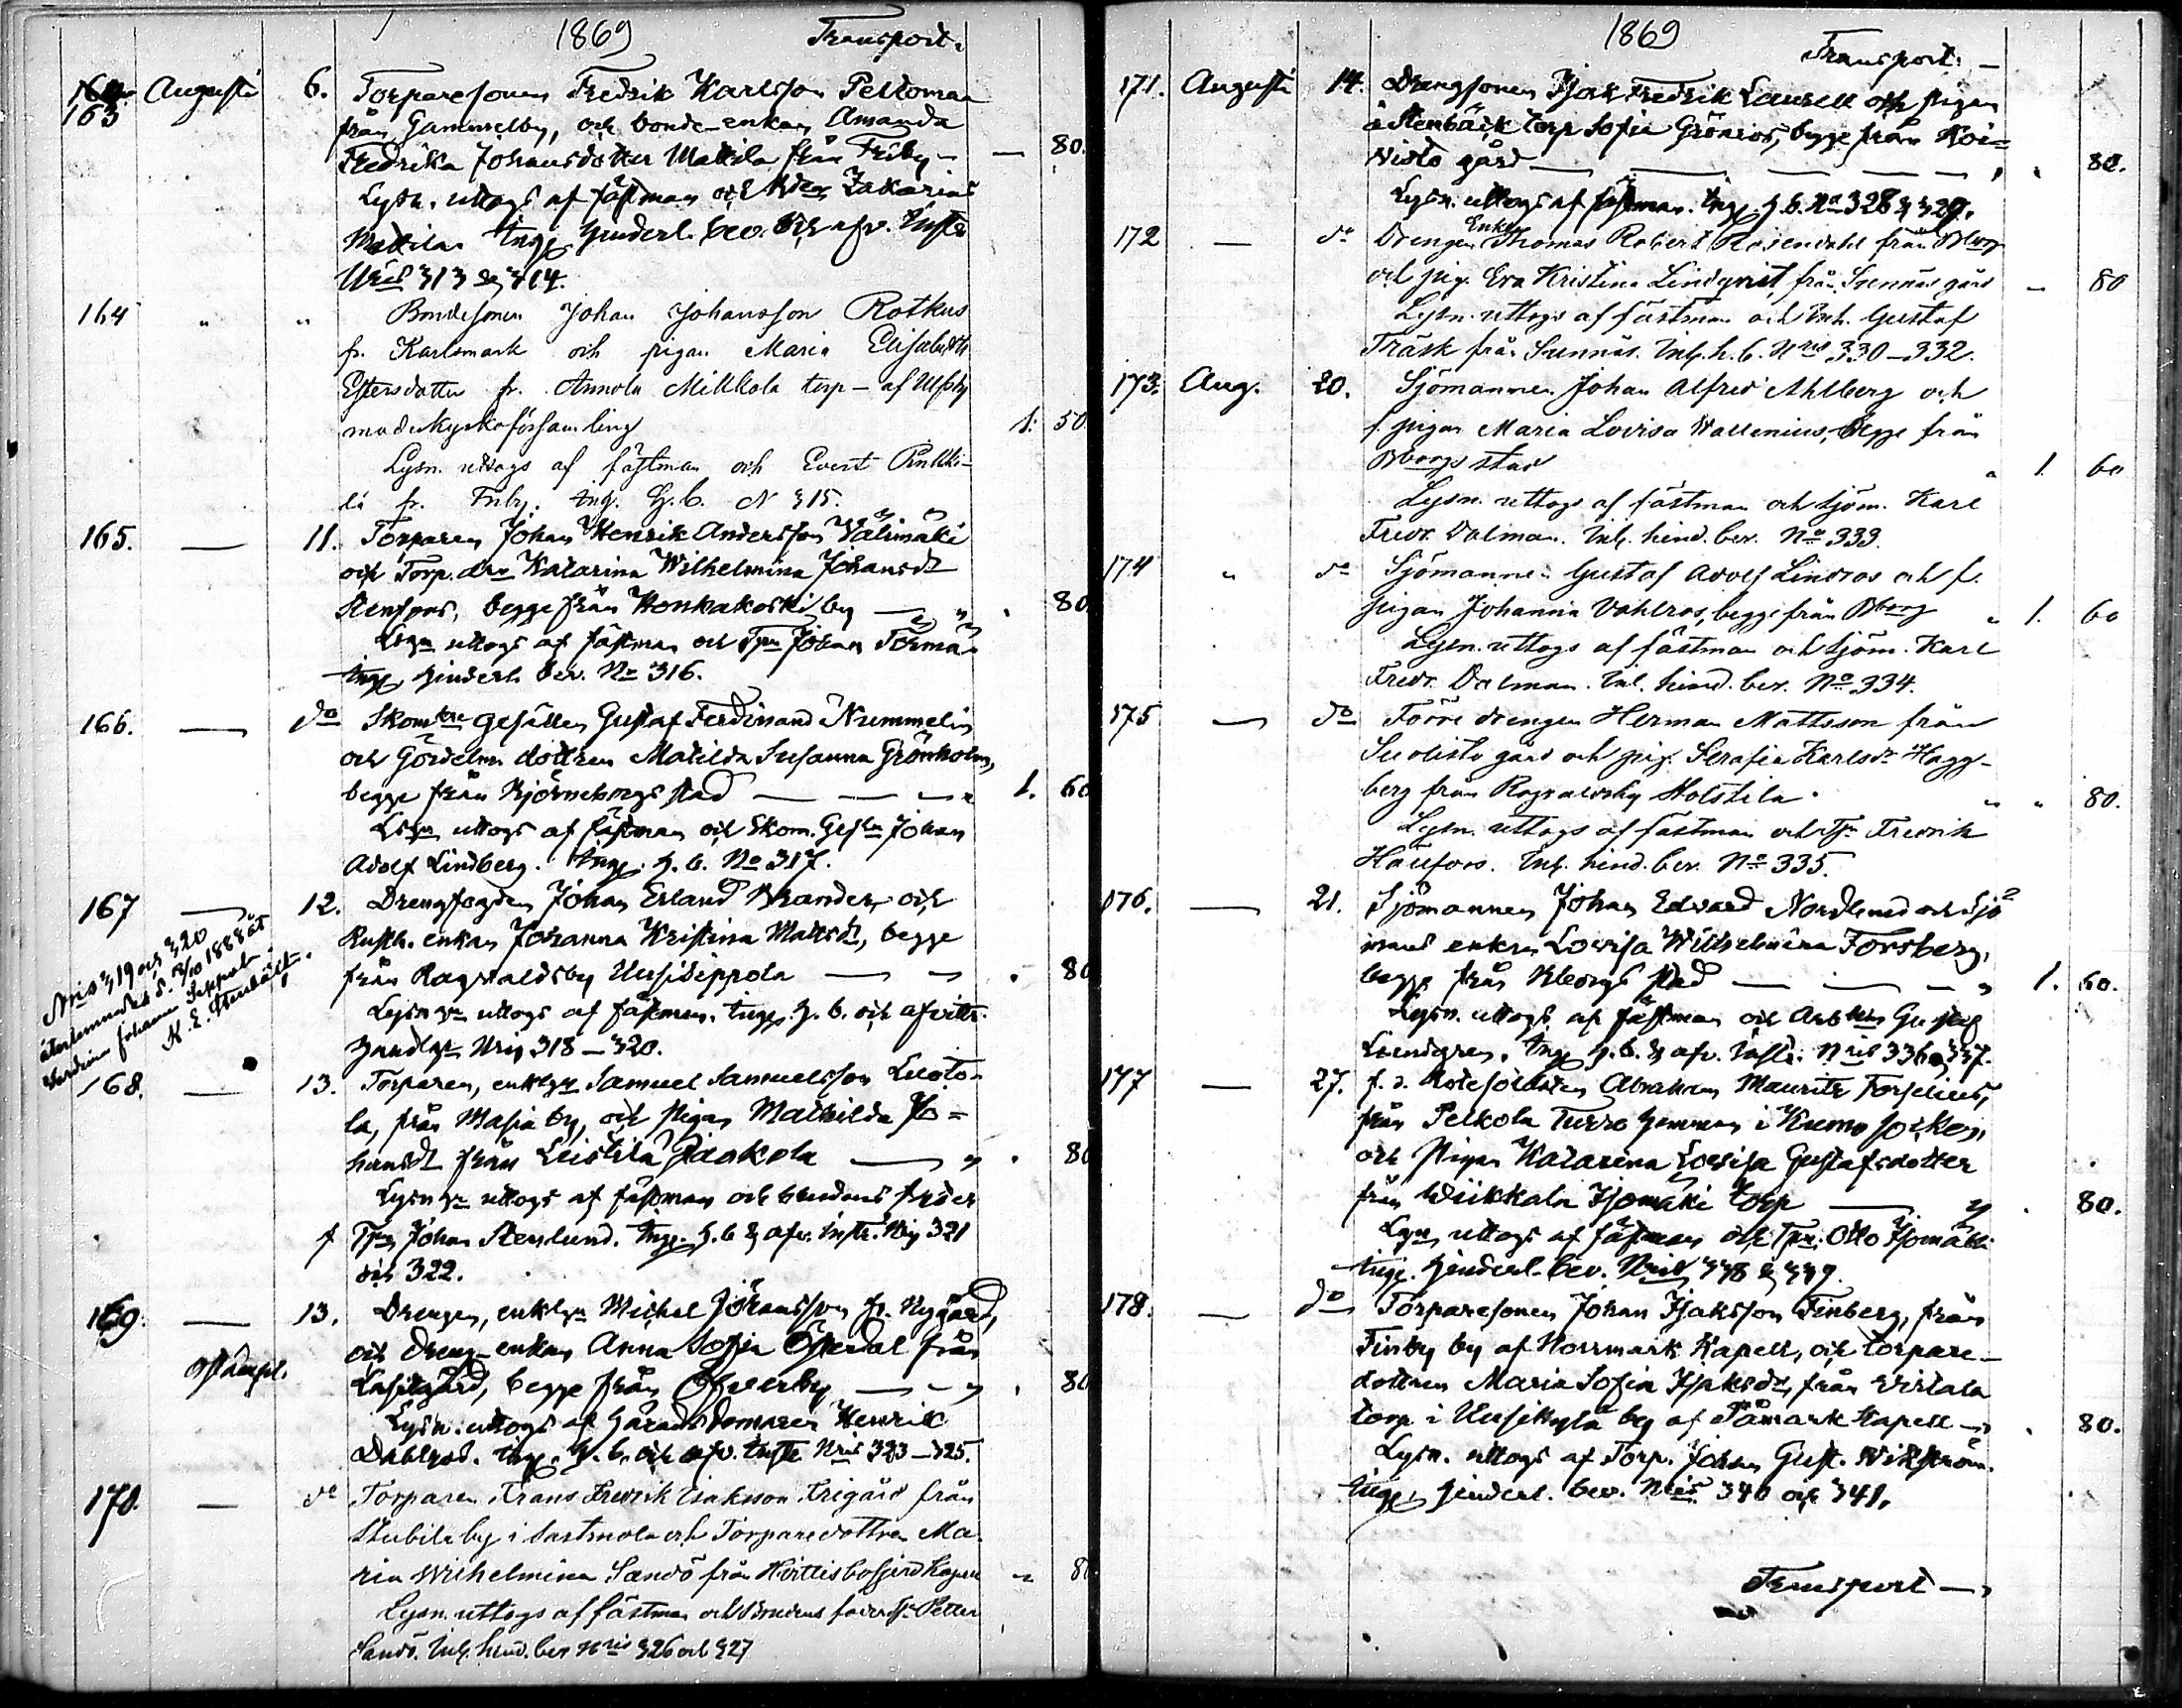 1869 Transport.
163 Augusti 6. Torparesonen Fredrik Karlsson Peltomaa
från Gammelby, och bonde-enkan Amanda
Fredrika Johansdotter Mattila från Friby — — 80.
Lysn. uttogs af fästman och Zakarias
Mattila. Ingz. hinderl. bev. och afv. Inst:
Nris 313 & 314.
164 " " Bondesonen Johan Johansson Rotkus
fr. Karlsmark och pigan Maria Elisabeth
dotter fr. Annola Mikkola torp — af Ulfsby
moderkyrkoförsamling 1. 50.
Lysn. uttogs af fästman och Evert
lä fr. Friby. Ingz. H.b. N 315.
165. — 11. Torparen Johan Henrik Andersson Välimäki
och Torp. dra Katarina Wilhelmina Johansdr
Stenfors, begge från Konkakoski by — " . 80
Lysn uttogs af fästman och Tpn Johan Törmä
Ingz. hinderl. bev. No 316.
166. — do Skomkre gesällen Gustaf Ferdinand Nummelin
och Gördelm. dottren Matilda Susanna Grönholm,
begge från Björneborgs stad — — — " 1. 60
Lysn uttogs af fästman och Skom. Gesln Johan
Adolf Lindberg. Ingz. h. b. No 317.
167 — 12. Drengfogden Johan Erland Brander och
Rusth. enkan Johanna Kristina Mattsdr, begge
från Ragvaldsby Uusiseppola — — . 80
Lysn gn uttogs af fästman. Ingz. h. b. och afvittr.
handlgr Nris 318 — 320.
Nris 319 och 320
återlemnades d. 12/10 1888 åt
Johanna Seppel
K. E. Stenbäck.
168. — 13. Torparen, enklgn Samuel Samuelsson Luoto-
la, från Masia by, och pigan Mathilda Jo=
hansdr från Leistilä Jaakola — " . 80
Lysn gn uttogs af fästman och brudens fader
f Tpn Johan Stenlund. Ingz. h. b & afv. instr. Nris 321
och 322.
169. — 13. Drengen, enklgn Michel Johansson fr. Nygård,
och Dreng-enkan Anna Sofia Österdal från
Lassilagård, begge från Öfverby — — " . 80
Lysn. uttogs af häradsdomaren Henrik
Dahlrod. Ingz. h. b. och afv. Instr Nris 323 — 325.
170. — do Torparen Frans Fredrik Isaksson Frigård från
Stubila by i Sastmola och Torparedottren Ma-
ria Wilhelmina Sandö från Hvittisbofjerd Kapell " 80
Lysn. uttogs af fästman och Brudens fader Tpn Petter
Sandö. Inl. hind. bev Nris 326 och 327
1869 Transport: —
171. Augusti 14. Drengsonen Isak Fredrik Laurell och pigan
å Stenbäck torp Sofia Grönros, begge från Koi=
visto gård — — — — — " . 80.
Lysn. uttogs af fästman. Ingz. h. b. No 328 & 329.
172 — do Drengen Enkl. Thomas Robert Rosendahl från Bborg
och pig. Eva Kristina Lindqvist från Sunnäs gård — 80
Lysn. uttogs af fästman och Inh. Gustaf
Träsk från Sunnäs. Inl. h. b. Nris 330 — 332.
173. Aug. 20. Sjömannen Johan Alfred Ahlberg och
f. pigan Maria Lovisa Wallenius, begge från
Bborgs stad " 1. 60
Lysn. uttogs af fästman och Sjöm. Karl
Fredr. Dalman. Inl. hind. bev. No 333.
174 " do Sjömannen Gustaf Adolf Lindros och f.
pigan Johanna Vahlros, begge från Bborg " 1. 60
Lysn. uttogs af fästman och Sjöm. Karl
Fredr. Dalman. Inl. hind. bev. No 334.
175 — do Förre drengen Herman Mattsson från
Suolisto gård och pig. Serafia Karlsdr Hägg-
berg från Ragvaldsby Holstila. " " 80.
Lysn. uttogs af fästman och Tpn Fredrik
Haufors. Inl. hind. bev. No 335.
176. — 21. Sjömannen Johan Edvard Nordlund och Sjö=
mans enkan Lovisa Wilhelmina Forsberg,
begge från Bborgs stad — — — " 1. 60.
Lysn. uttogs af fästman och Arbkrn Gustaf
Lindgren. Ingz. h. b. & afv. Instr: Nris 336 & 337.
177 — 27. f. d. Rotesoldaten Abraham Mauritz Forselius,
från Peltola Turro hemman i Kumo socken,
och Pigan Katarina Lovisa Gustafsdotter
från Wiikkala Isomäki torp — " . 80.
Lysn uttogs af fästman och Tpn. Otto Isomäki
Ingz. hinderl. bev. Nris 338 & 339.
178. — do Torparesonen Johan Isaksson Finberg, från
Finby by af Norrmark Kapell, och torpare-
dottren Maria Sofia Isaksdr, från Virtala
torp i Uusikylä by af Påmark Kapell — . 80.
Lysn. uttogs af Torp. Johan Gust. Wikström.
Ingz. hinderl. bev. Nris 340 och 341.
Transport —